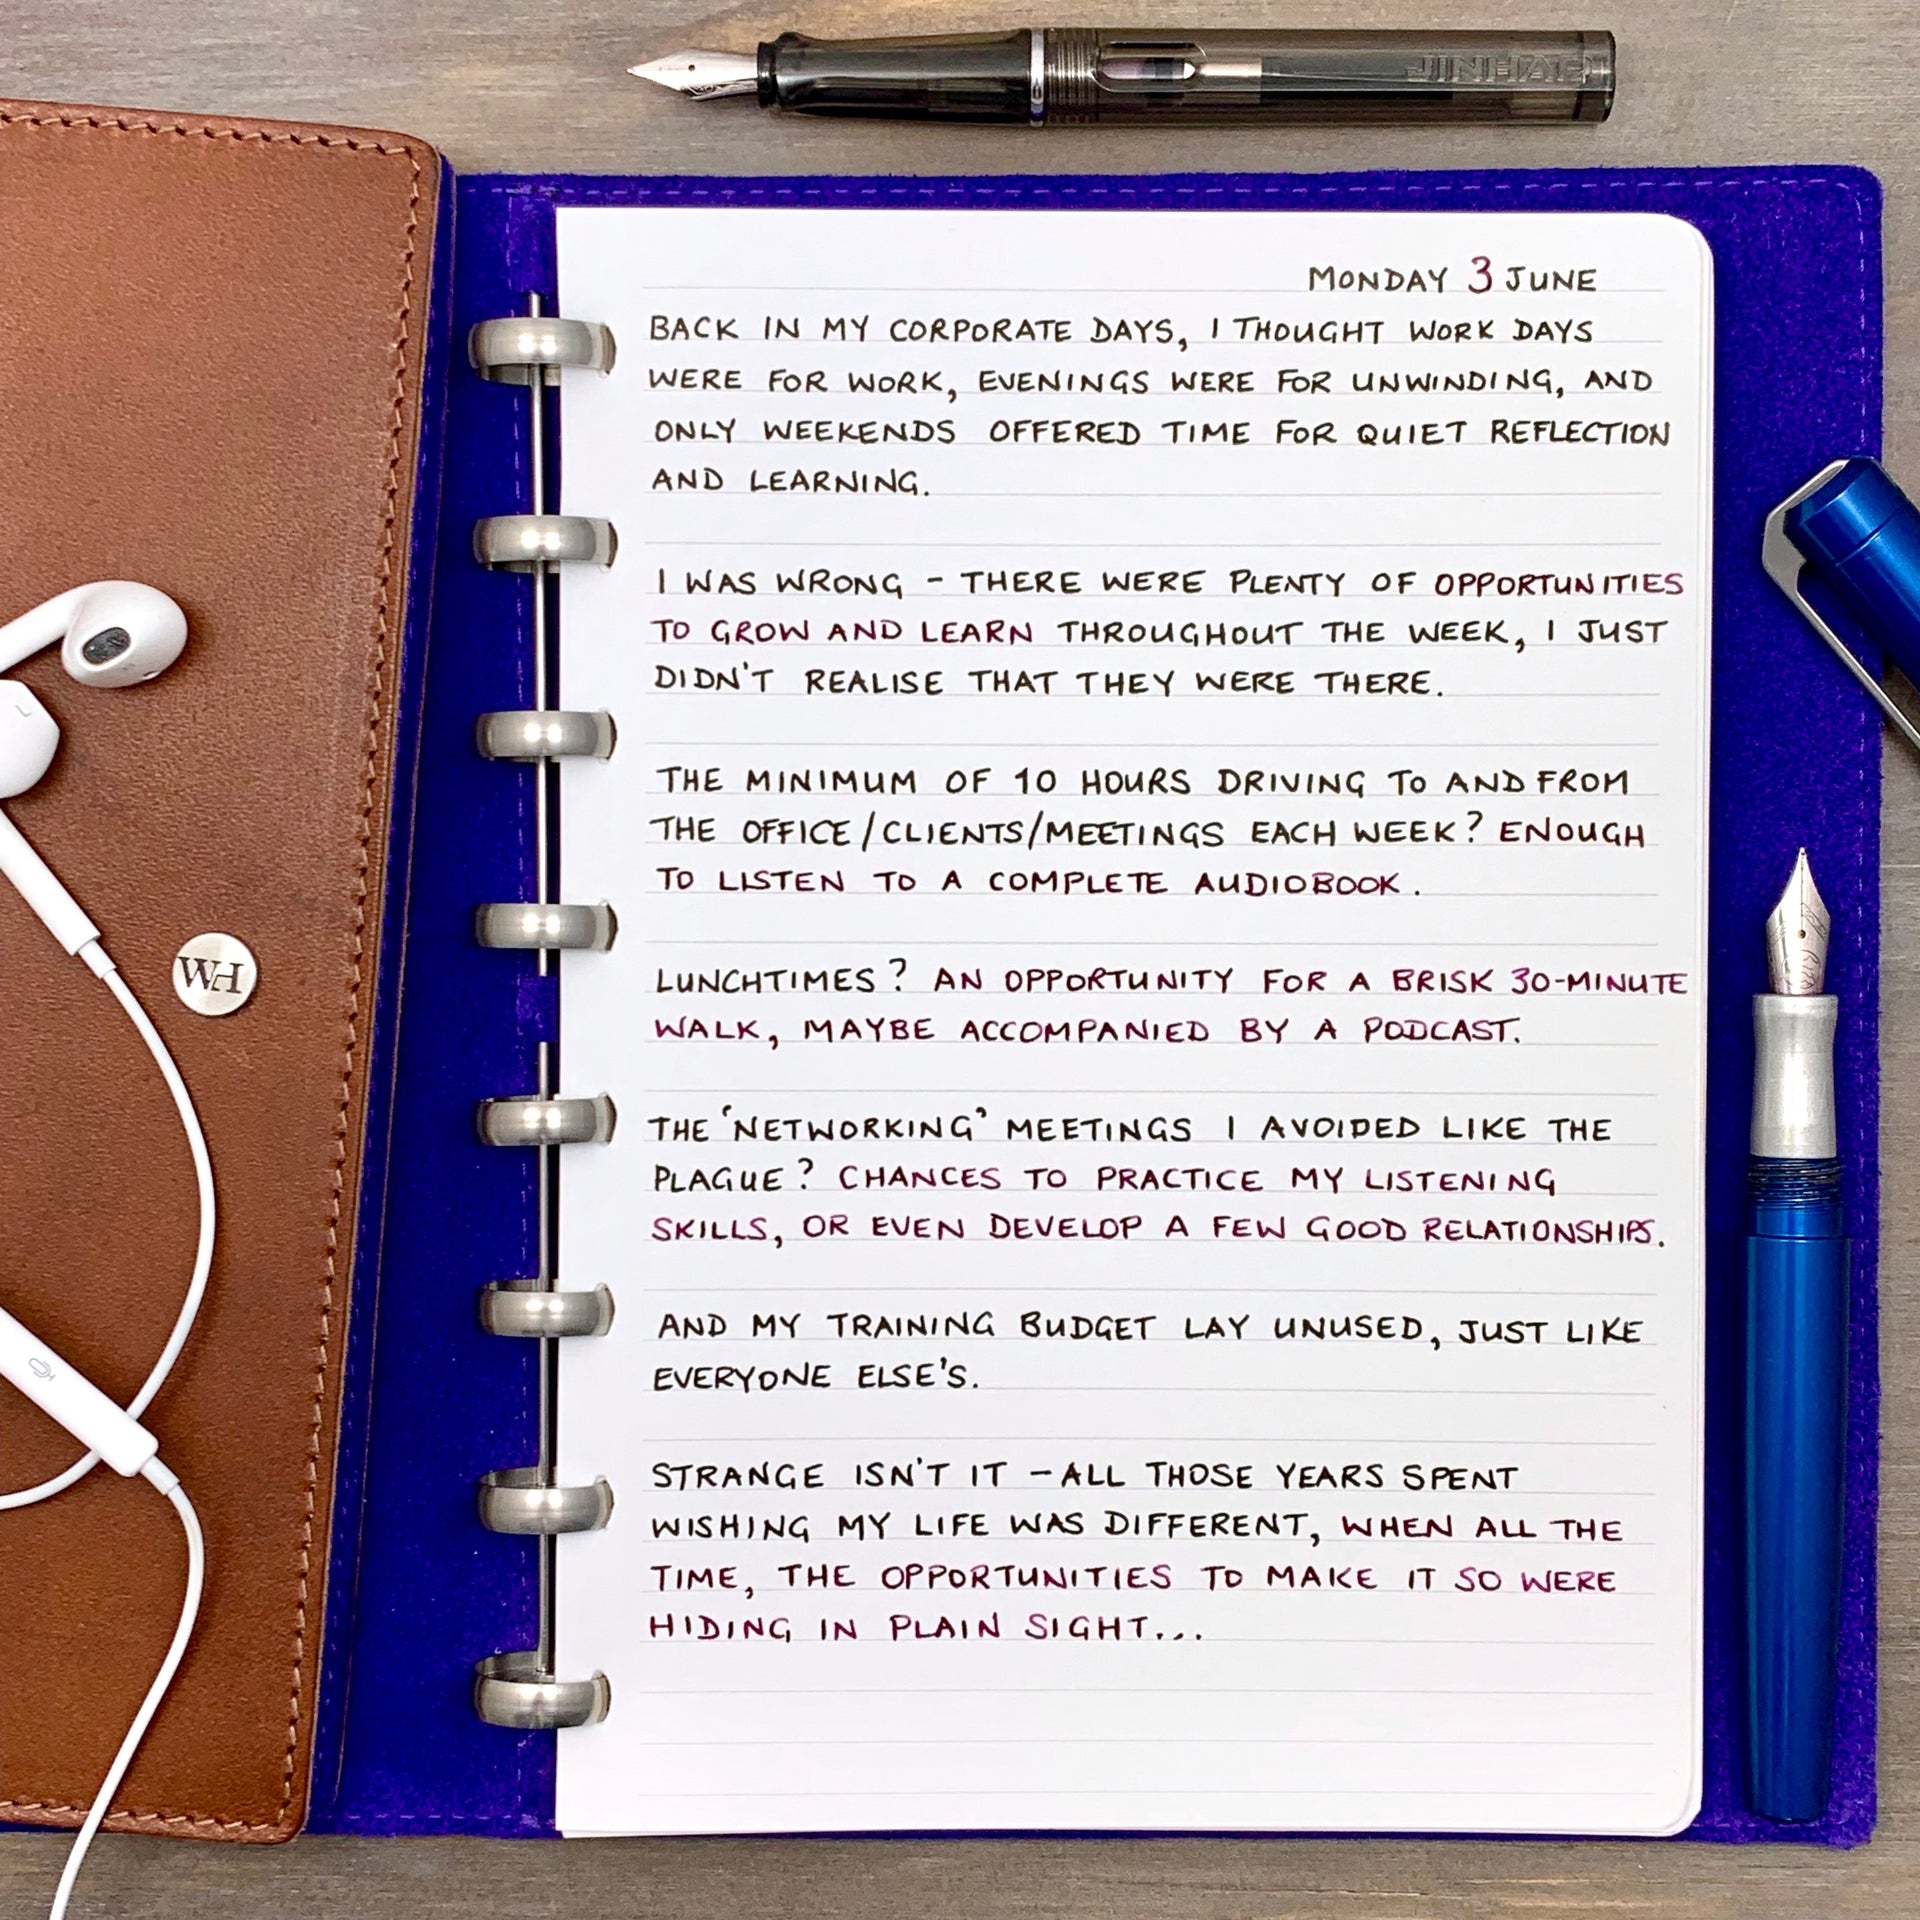 JINHAO
MONDAY 3 JUNE
BACK IN MY CORPORATE DAYS, I THOUGHT WORK DAYS
WERE FOR WORK, EVENINGS WERE FOR UNWINDING, AND
ONLY WEEKENDS OFFERED TIME FOR QUIET REFLECTION
AND LEARNING.
I WAS WRONG - THERE WERE PLENTY OF OPPORTUNITIES
TO GROW AND LEARN THROUGHOUT THE WEEK, I JUST
DIDN'T REALISE THAT THEY WERE THERE.
THE MINIMUM OF 10 HOURS DRIVING TO AND FROM
THE OFFICE/CLIENTS/MEETINGS EACH WEEK? ENOUGH
TO LISTEN TO A COMPLETE AUDIOBOOK.
LUNCHTIMES? AN OPPORTUNITY FOR A BRISK 30-MINUTE
WALK, MAYBE ACCOMPANIED BY A PODCAST.
THE 'NETWORKING' MEETINGS I AVOIDED LIKE THE
PLAGUE? CHANCES TO PRACTICE MY LISTENING
SKILLS, OR EVEN DEVELOP A FEW GOOD RELATIONSHIPS.
AND MY TRAINING BUDGET LAY UNUSED, JUST LIKE
EVERYONE ELSE'S.
STRANGE ISN'T IT - ALL THOSE YEARS SPENT
WISHING MY LIFE WAS DIFFERENT, WHEN ALL THE
TIME, THE OPPORTUNITIES TO MAKE IT SO WERE
HIDING IN PLAIN SIGHT...
WH
L